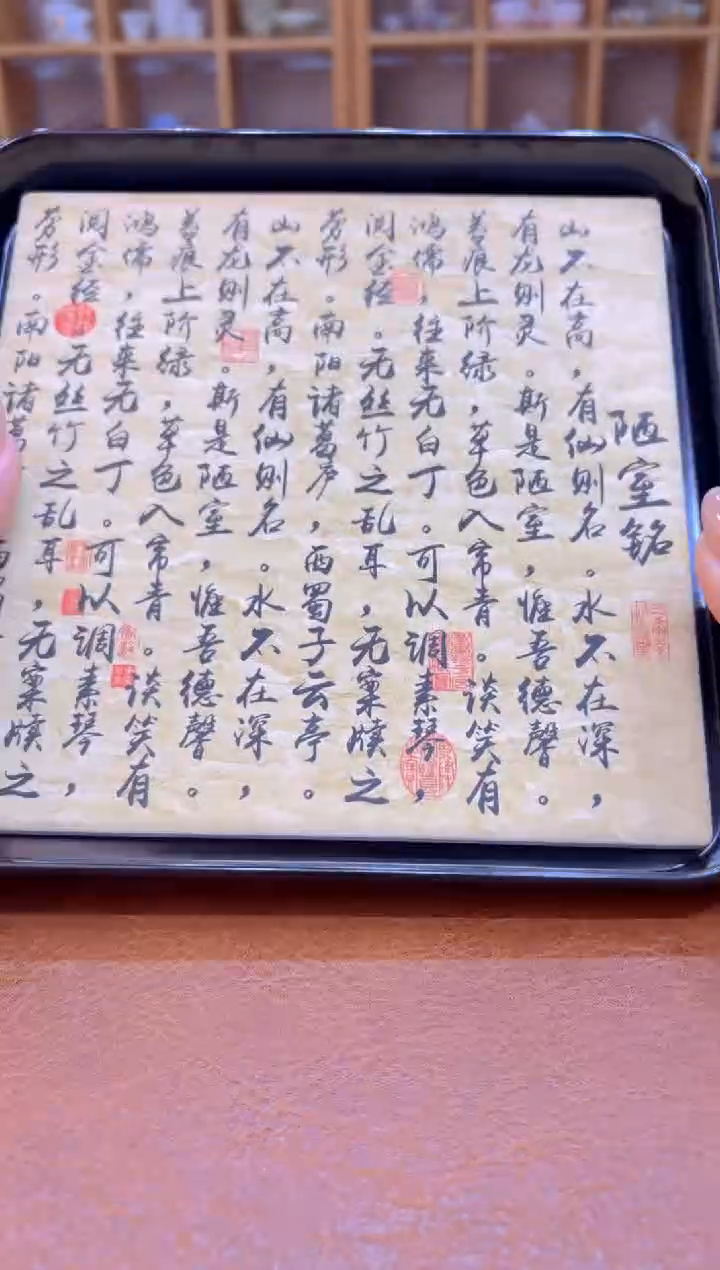 陋室铭
山不在高，有仙则名。水不在深，
有龙则灵。斯是陋室，惟吾德馨。
苔痕上阶绿，草色入帘青。谈笑有
鸿儒，往来无白丁。可以调素琴，
阅金经。无丝竹之乱耳，无案牍之
劳形。南阳诸葛庐，西蜀子云亭。
山不在高，有仙则名。水不在深，
有龙则灵。斯是陋室，惟吾德馨。
苔痕上阶绿，草色入帘青。谈笑有
鸿儒，往来无白丁。可以调素琴，
阅金经。无丝竹之乱耳，无案牍之
劳形。南阳诸葛